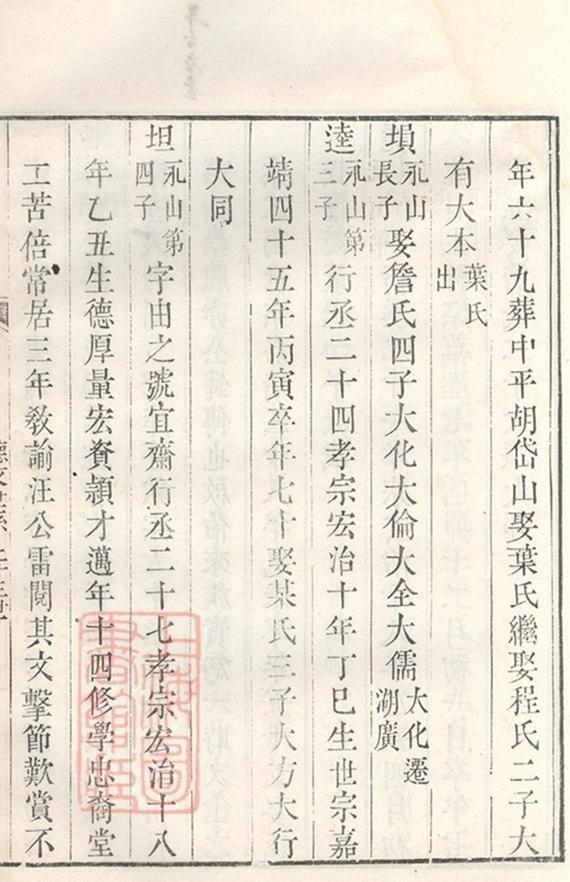 年六十九葬中平胡岱山娶葉氏繼娶程氏二子大
有大本葉氏出
塤永山長子娶詹氏四子大化大倫大全大儒大化遷湖廣
逵永山第三子行丞二十四孝宗宏治十年丁巳生世宗嘉
靖四十五年丙寅卒年七十娶某氏三子大方大行
大同
坦永山第四子字由之號宜齋行丞二十七孝宗宏治十八
年乙丑生德厚量宏資穎才邁年十四修學忠裔堂
工苦倍常居三年教諭汪公雷閱其文擊節歎賞不